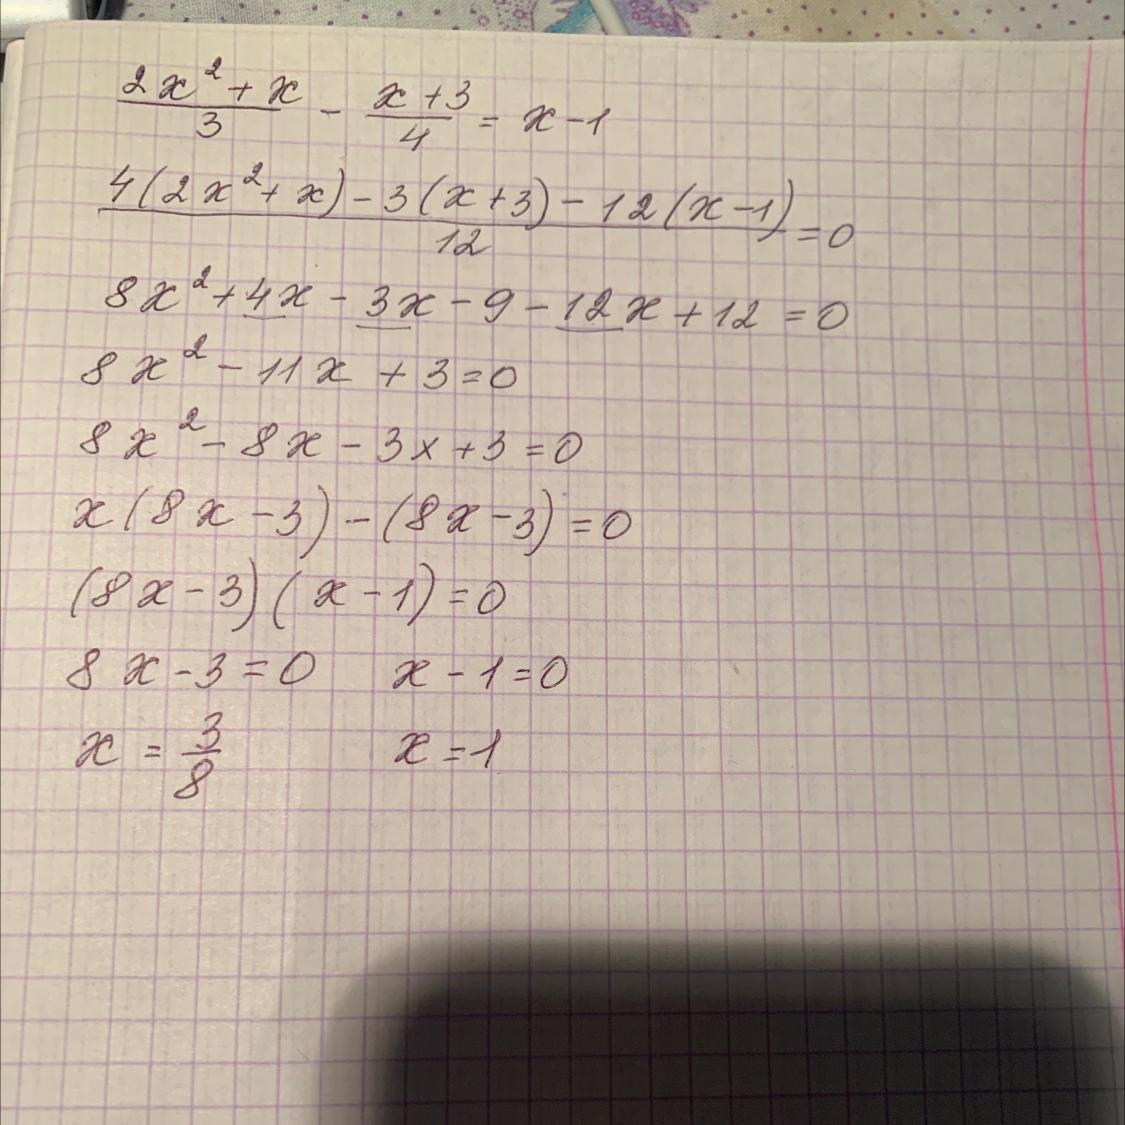 (2x²+x)/3 - (x+3)/4 = x-1
(4(2x²+x)-3(x+3)-12(x-1))/12 = 0
8x²+4x-3x-9-12x+12=0
8x²-11x+3=0
8x²-8x-3x+3=0
x(8x-3)-(8x-3)=0
(8x-3)(x-1)=0
8x-3=0 x-1=0
x = 3/8 x=1